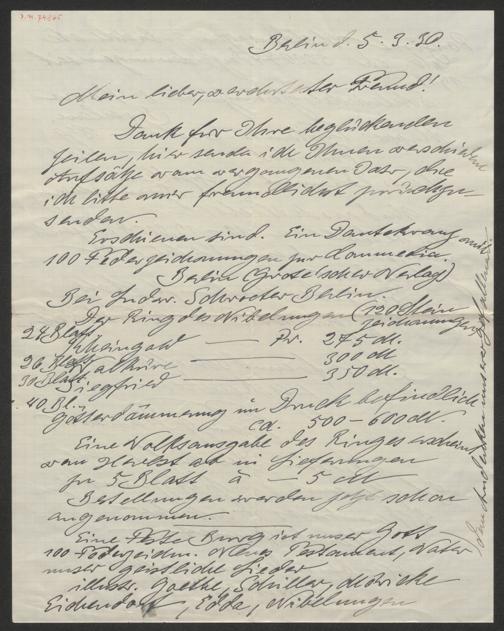 Berlin d. 5.3.30.
Mein lieber, verehrtester Freund!
Dank für Ihre beglückenden
Zeilen, hier sende ich Ihnen verschiedene
Aufsätze vom vergangenen Jahr, die
ich bitte unser freundlichst zurückzu-
senden.
Erschienen sind. Ein Dantekranz mit
100 Federzeichnungen zur Commedia.
Berlin (Grote'scher Verlag)
Bei Schroeter Berlin.
Der Ring des Nibelungen (120
Zeichnungen)
24 Blatt
Rheingold — Pr. 275 M.
26 Blatt Walküre 300 M
30 Blatt Siegfried — 350 M.
40 Bl.
Götterdämmerung im Druck befindlich
ca. 500–600 M.
Eine Volksausgabe des Ringes erscheint
vom Herbst ab in Lieferungen
zu 5 Blatt à — 5 M
Bestellungen werden jetzt schon
angenommen.
Eine Feste Burg ist unser Gott
100 Federzeichn. Neues Testament, Vater
unser geistliche Lieder
illustr. Goethe, Schiller, Möricke
Eichendorf, Edda, Nibelungen